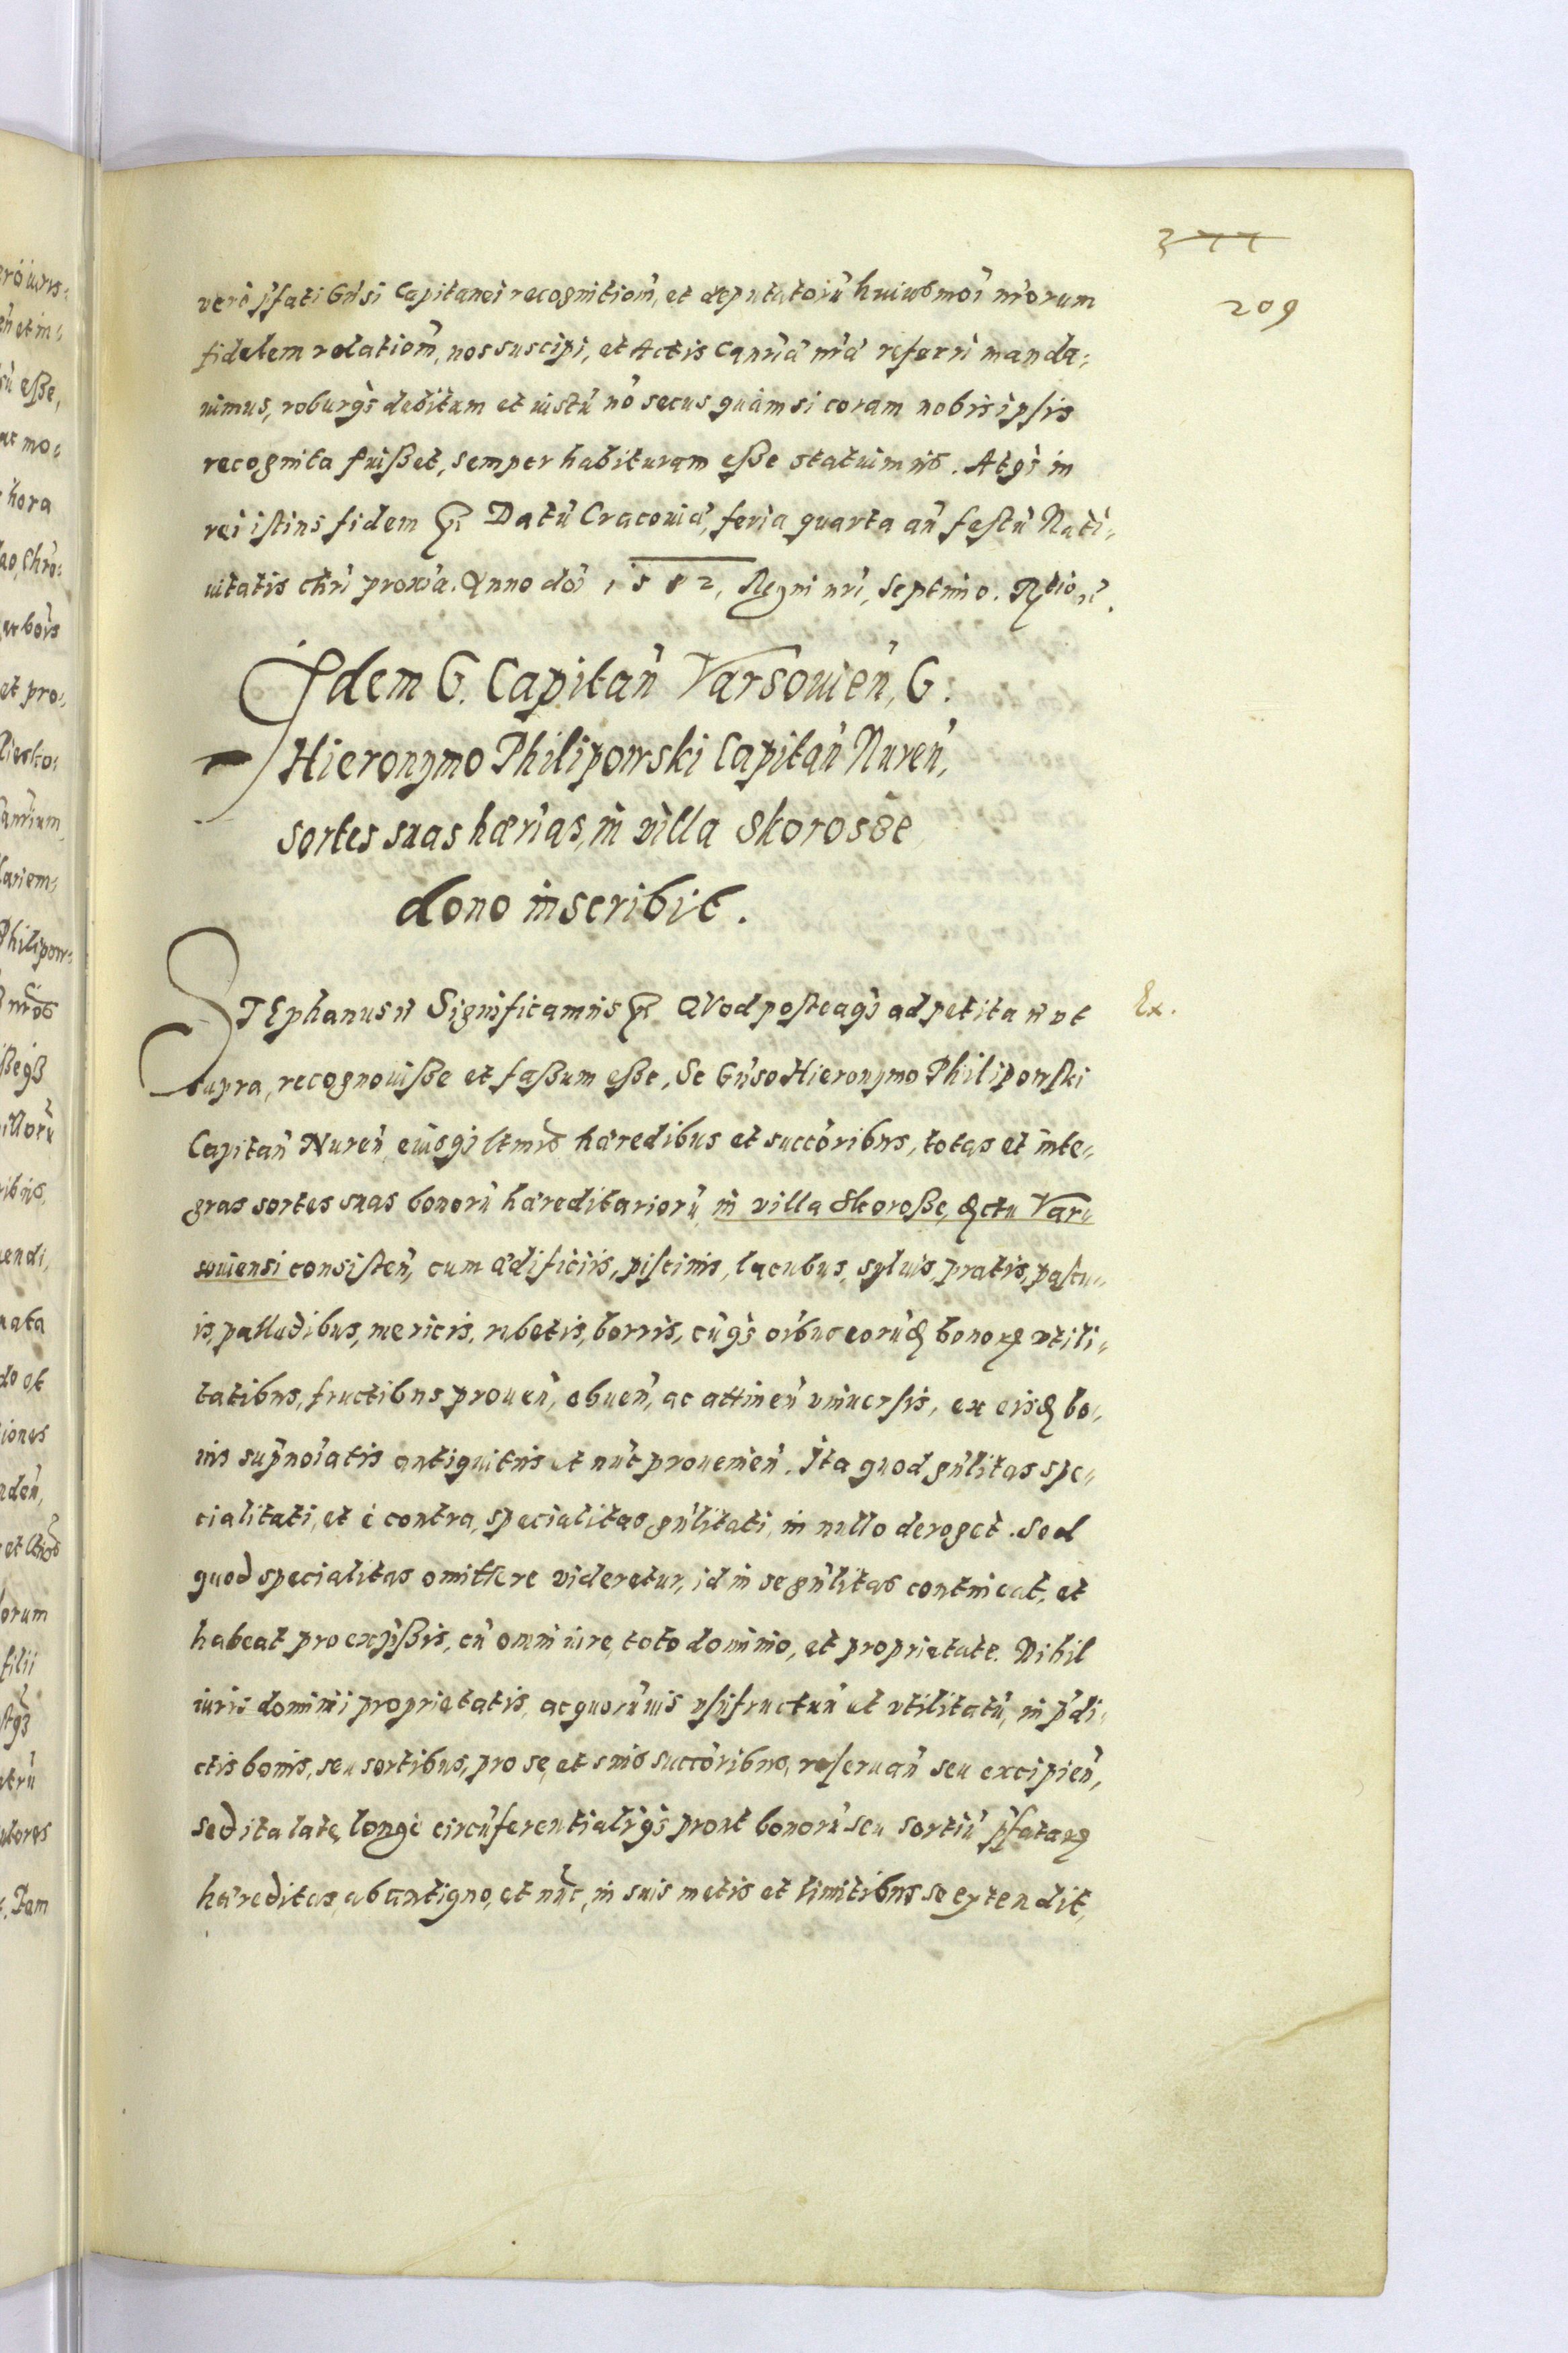 377
209
verò pfati Gnsi Capitanei recognitiom̃, et deputatorũ huiusmoi nrorum
fidelem relatiom̃, nos suscipi, et Actis Canriæ nræ referri manda,,
uimus, roburq̀ debitum et iustũ nõ secus quàm si coram nobis ipsis
recognita fuißet, semper habituram eße statuimus. Atq̀ in
rei istius fidem Datũ Cracouiæ, feria quarta añ festũ Nati,,
uitatis Chri proxiã. Anno doi 1582, Regni nri, Septimo.
Idem G. Capitañ Varsouieñ, G.
Hieronymo Philipowski Capitañ Nureñ,
sortes suas hærias, in villa Skorosße
dono inscribit.
STEphanus Significamus QVod posteaq̀ ad petita vt
Ex.
supra, recognouiße et faßum eße, Se Gnso Hieronymo Philipowski
Capitañ Nureñ, eiusq̀ ltmis hæredibus et succõribus, totas et inte,,
gras sortes suas bonorũ hæreditariorũ, in villa Skoroße, Dctu Var,,
souiensi consisteñ, cum ædificiis, piscinis, lacubus, syluis, pratis, pascu,,
is, palludibus, mericis, rubetis, borris, cũq̀ oibus eorũd bonoꝝ vtili,,
tatibus, fructibus proueñ, obueñ, ac attineñ vniuersis, ex eisd bo,,
nis supnoiatis antiquitus et nũc prouenieñ. Ita quod gnlitas spe,,
cialitati, et è contra, specialitas gnlitati, in nullo deroget. Sed
quod specialitas omittere videretur, id in se gnlitas contineat, et
habeat pro expßis, cũ omni iure, toto dominio, et proprietate. Nihil
iuris dominii proprietatis, ac quorũuis vsufructuũ et vtilitatũ, in pdi,,
ctis bonis, seu sortibus, pro se, et suis succõribus, reseruañ seu excipieñ,
sed ita late, longè circũferentialiq̀ prout bonorũ seu sortiũ pfataꝝ
hæreditas, ab antiquo, et nũc, in suis metis et limitibus se extendit,